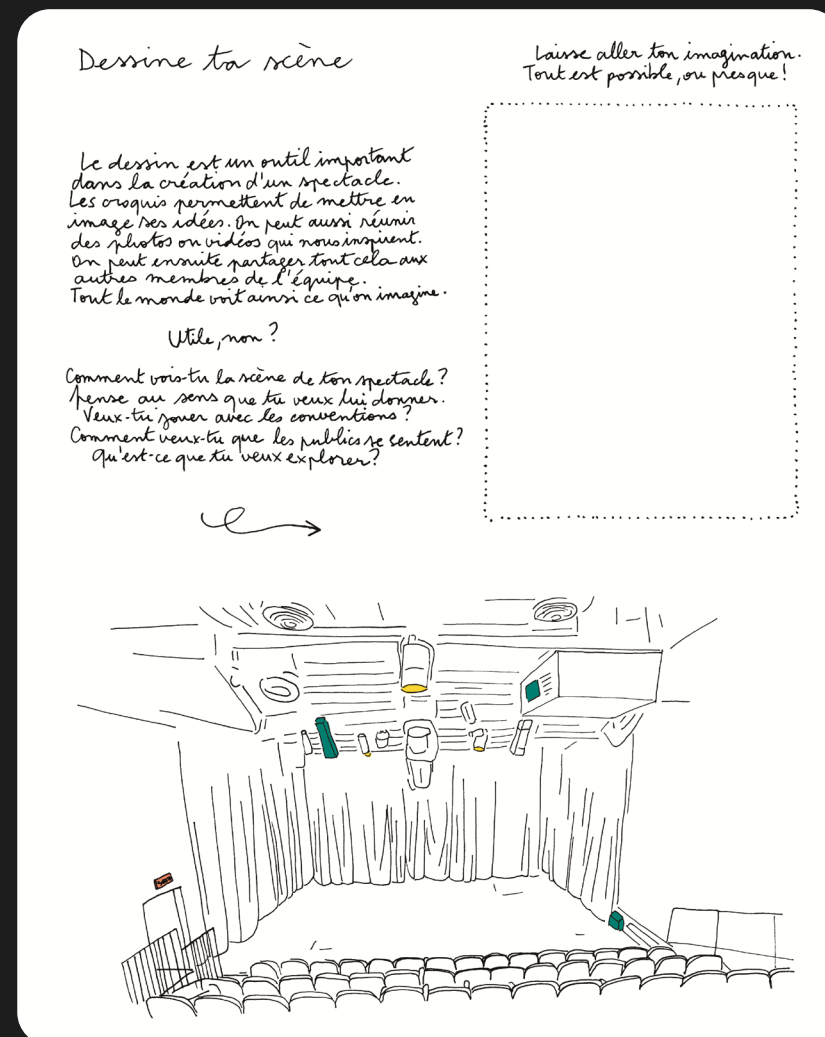 Dessine ta scène
Laisse aller ton imagination.
Tout est possible, ou presque !
Le dessin est un outil important
dans la création d'un spectacle.
Les croquis permettent de mettre en
image ses idées. On peut aussi réunir
des photos ou vidéos qui nous inspirent.
On peut ensuite partager tout cela aux
autres membres de l'équipe.
Tout le monde voit ainsi ce qu'on imagine.
Utile, non ?
Comment vois-tu la scène de ton spectacle ?
Pense au sens que tu veux lui donner.
Veux-tu jouer avec les conventions ?
Comment veux-tu que les publics se sentent ?
Qu'est-ce que tu veux explorer ?